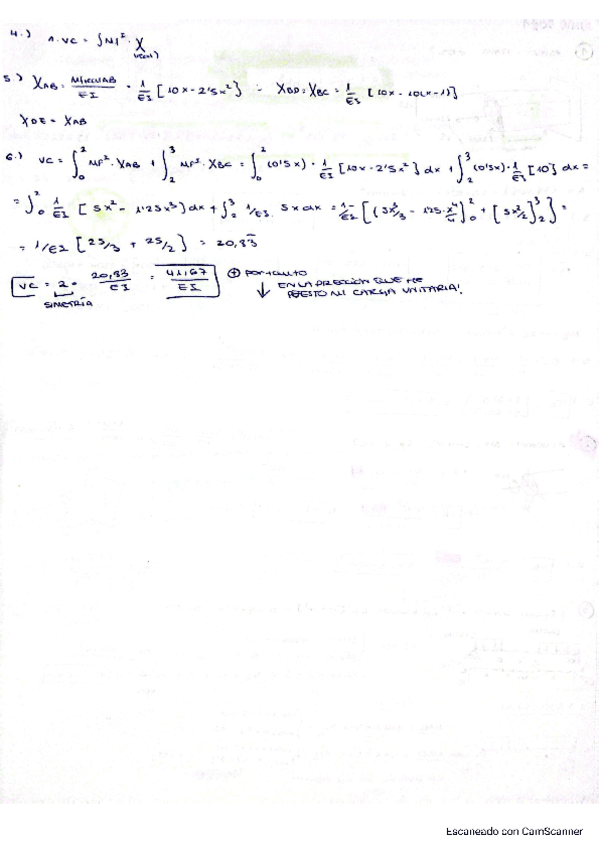 4.) 1·VC = ∫M^F · X
5.) XAB = MFREALAB / EI = 1/EI [10x - 2'5x²] ∴ XBD = XBC = 1/EI [10x - 10(x-1)]
XDE = XAB
6.) VC = ∫₀² MF² · XAB + ∫₂³ MF² · XBC = ∫₀² (0'5x) · 1/EI [10x - 2'5x²] dx + ∫₂³ (0'5x) · 1/EI [10] dx =
= ∫₀² 1/EI [5x² - 1'25x³] dx + ∫₂³ 1/EI · 5x dx = 1/EI [(5x³/3 - 1'25·x⁴/4)₀² + [5x²/2]₂³] =
= 1/EI [25/3 + 25/2] = 20,83
VC = 2 · 20,83/EI = 41,67/EI ⊕ por tanto
SIMETRÍA ↓ EN LA DIRECCIÓN QUE HE
PUESTO MI CARGA UNITARIA!
Escaneado con CamScanner